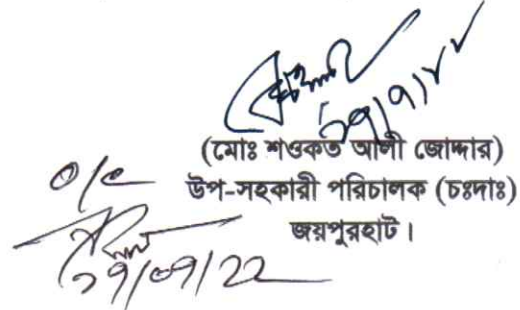 ২৭/৭/২২
(মোঃ শওকত আলী জোদ্দার)
উপ-সহকারী পরিচালক (চঃদাঃ)
জয়পুরহাট।
০/c
২৭/০৭/২২